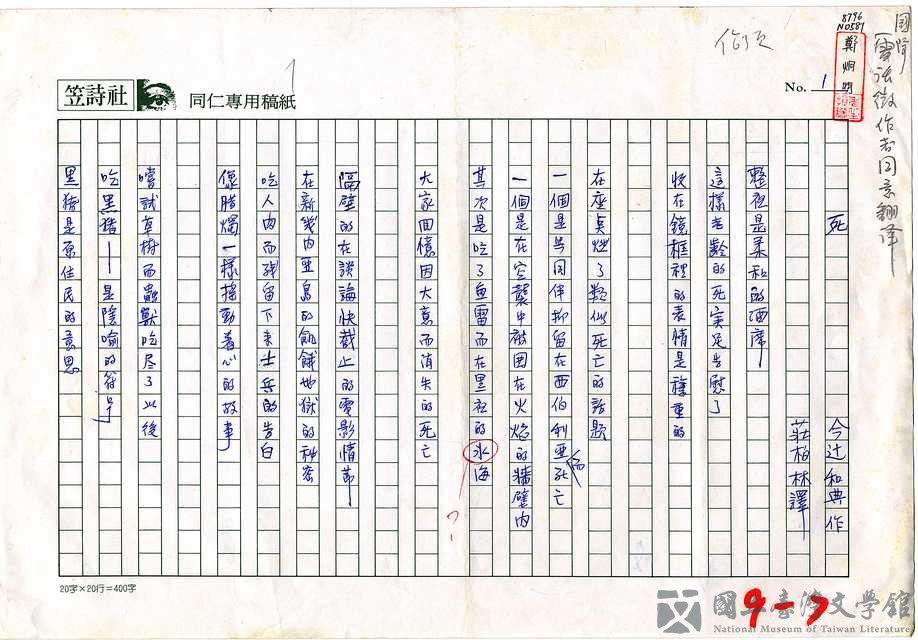 8796
N0587
鄭炯明
國賢
需註徵作者同意翻譯
No. 1
笠詩社
同仁專用稿紙
死
今辻和典作
莊柏林譯
整夜是柔和的酒席
這樣老齡的死實足告慰了
收在鏡框裡的表情是穩重的
在座卓燃了類似死亡的話題
一個是与同伴抑留在西伯利亞而死亡
一個是在空襲中被困在火焰的牆壁內
其次是吃了魚雷而在黑夜的冰海
?
大家回憶因大意而消失的死亡
隔壁的在談論快截止的電影情節
在新幾內亞島的飢餓地獄的神密
吃人肉而殘留下來士兵的告白
像腊燭一樣搖動著心的故事
嚐試草樹而蟲獸吃尽了以後
吃黑豬——是隱喻的符号
黑豬是原住民的意思
20字×20行=400字
9-7
國立臺灣文學館
National Museum of Taiwan Literature